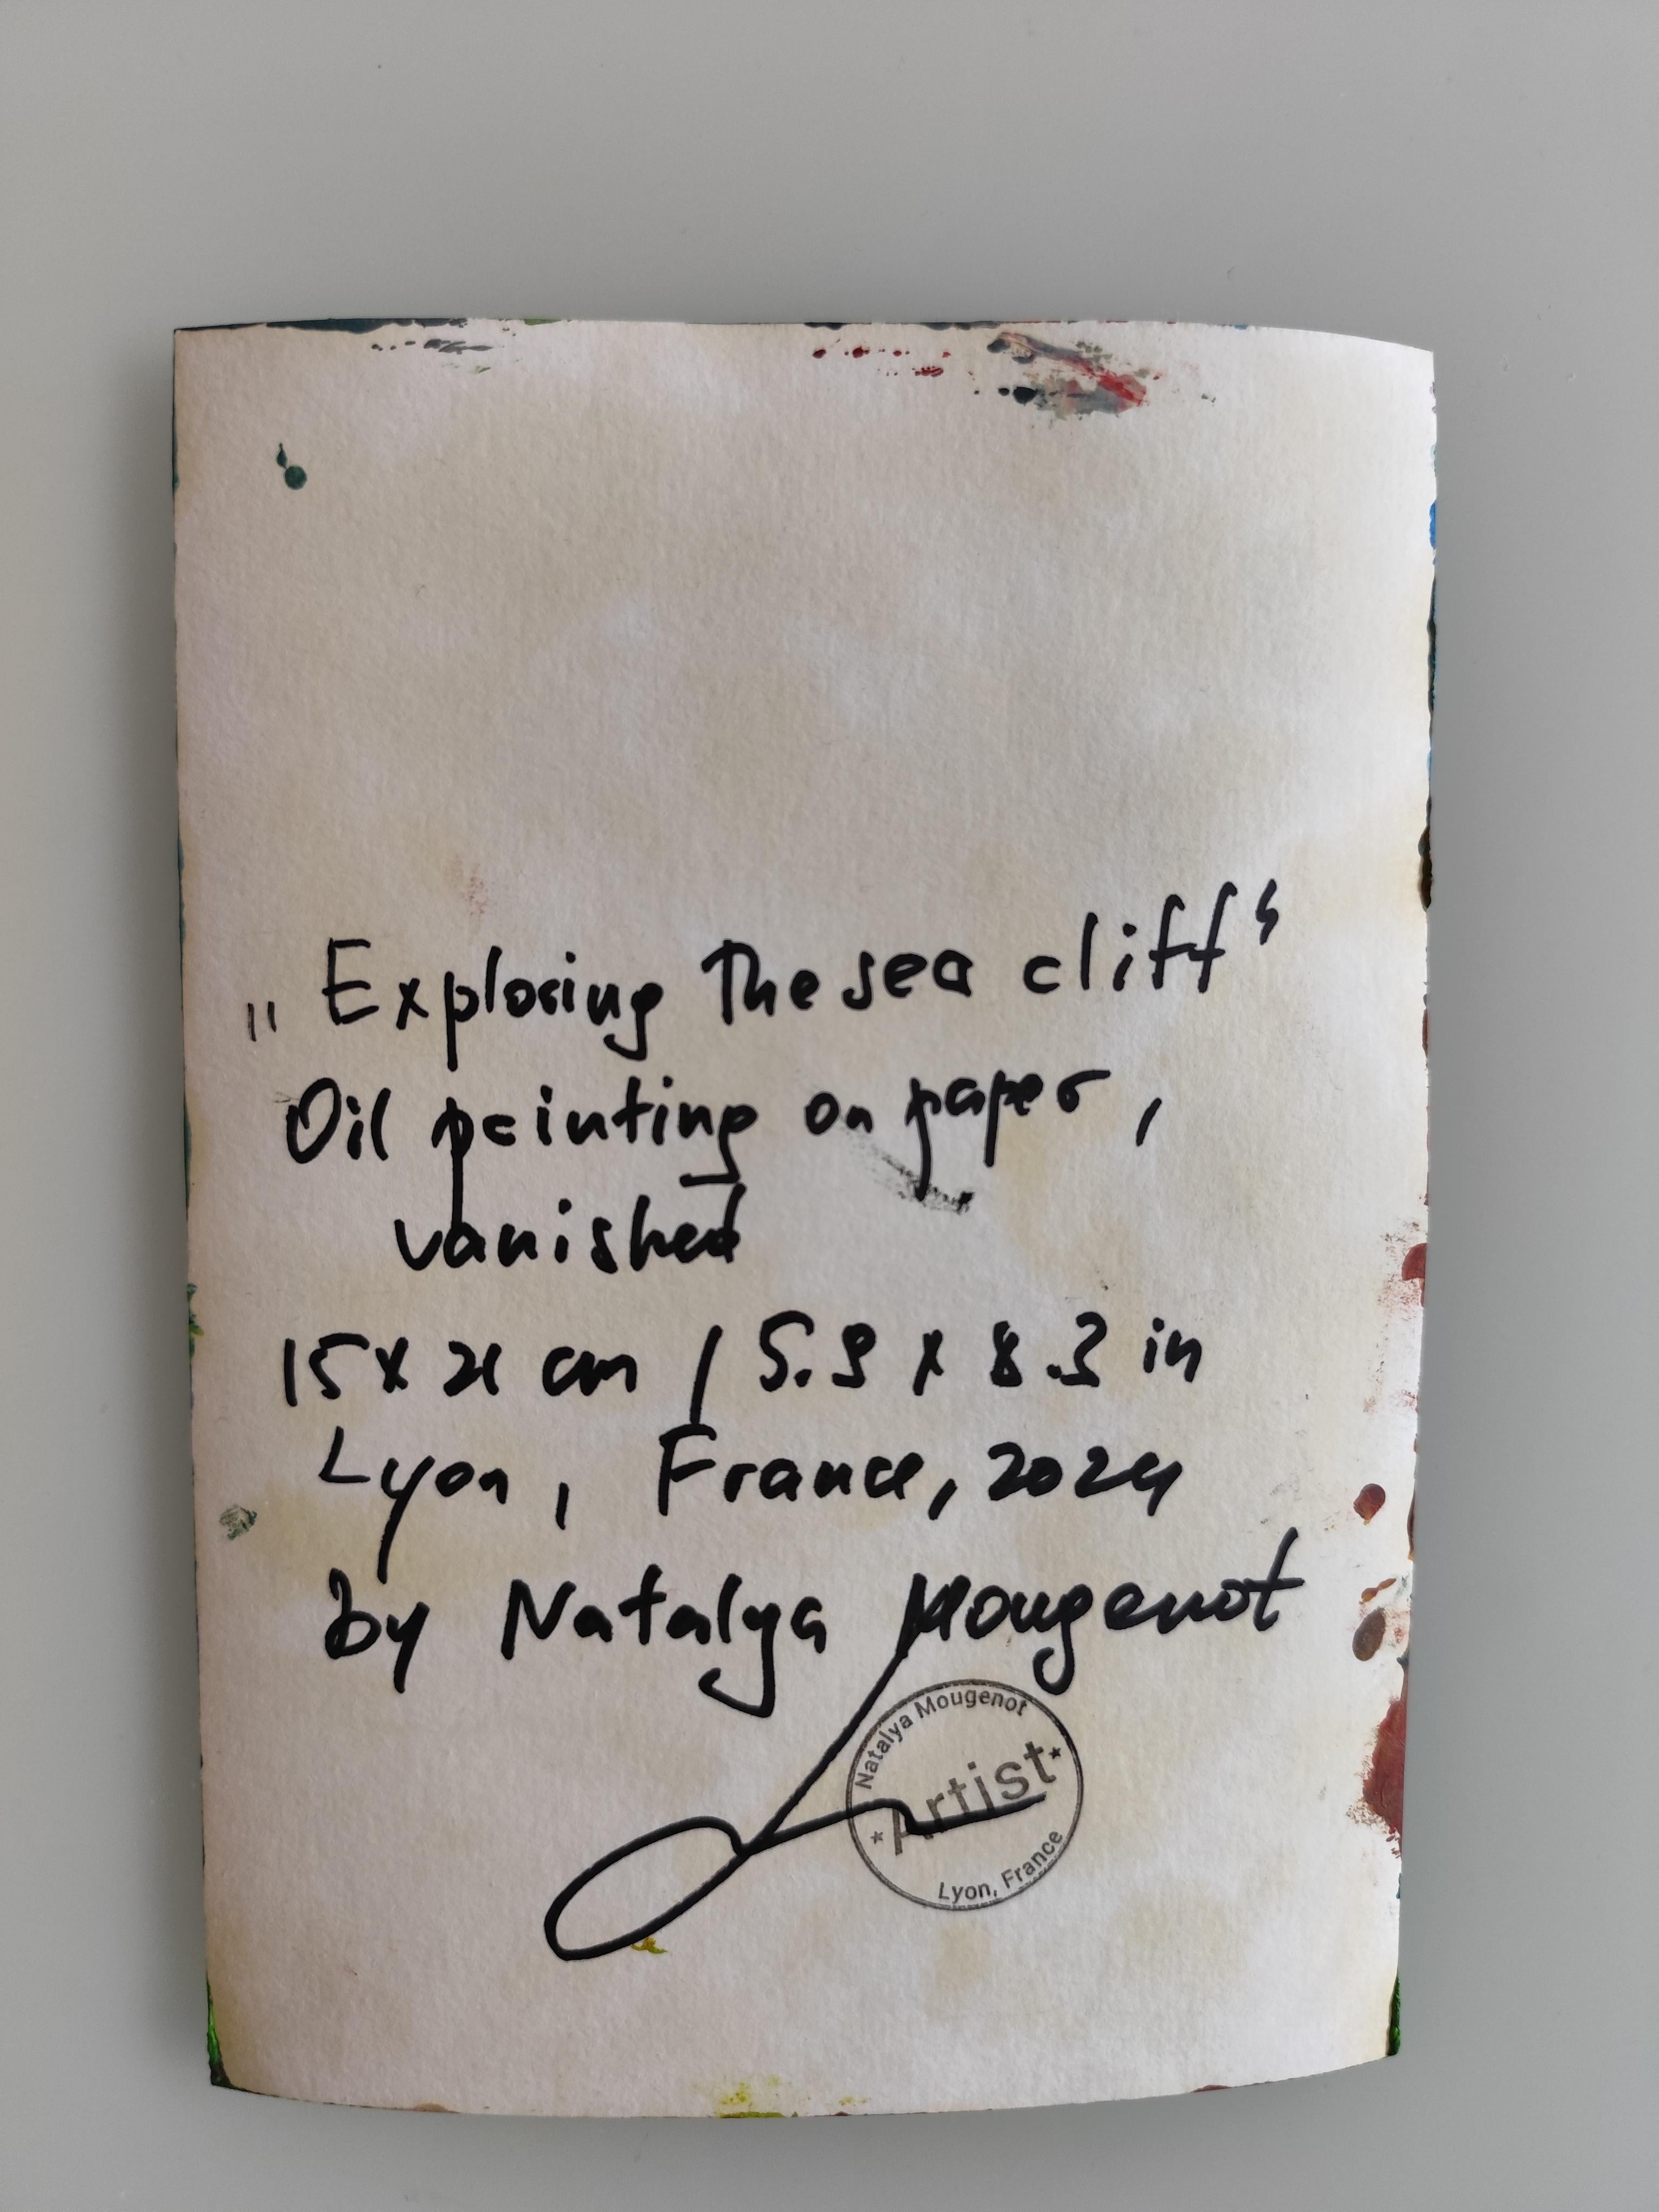 „Exploring The sea cliff“
Oil painting on paper,
vanished
15 x 21 cm / 5.9 x 8.3 in
Lyon, France, 2024
by Natalya Mougenot
Natalya Mougenot
Artist
Lyon, France